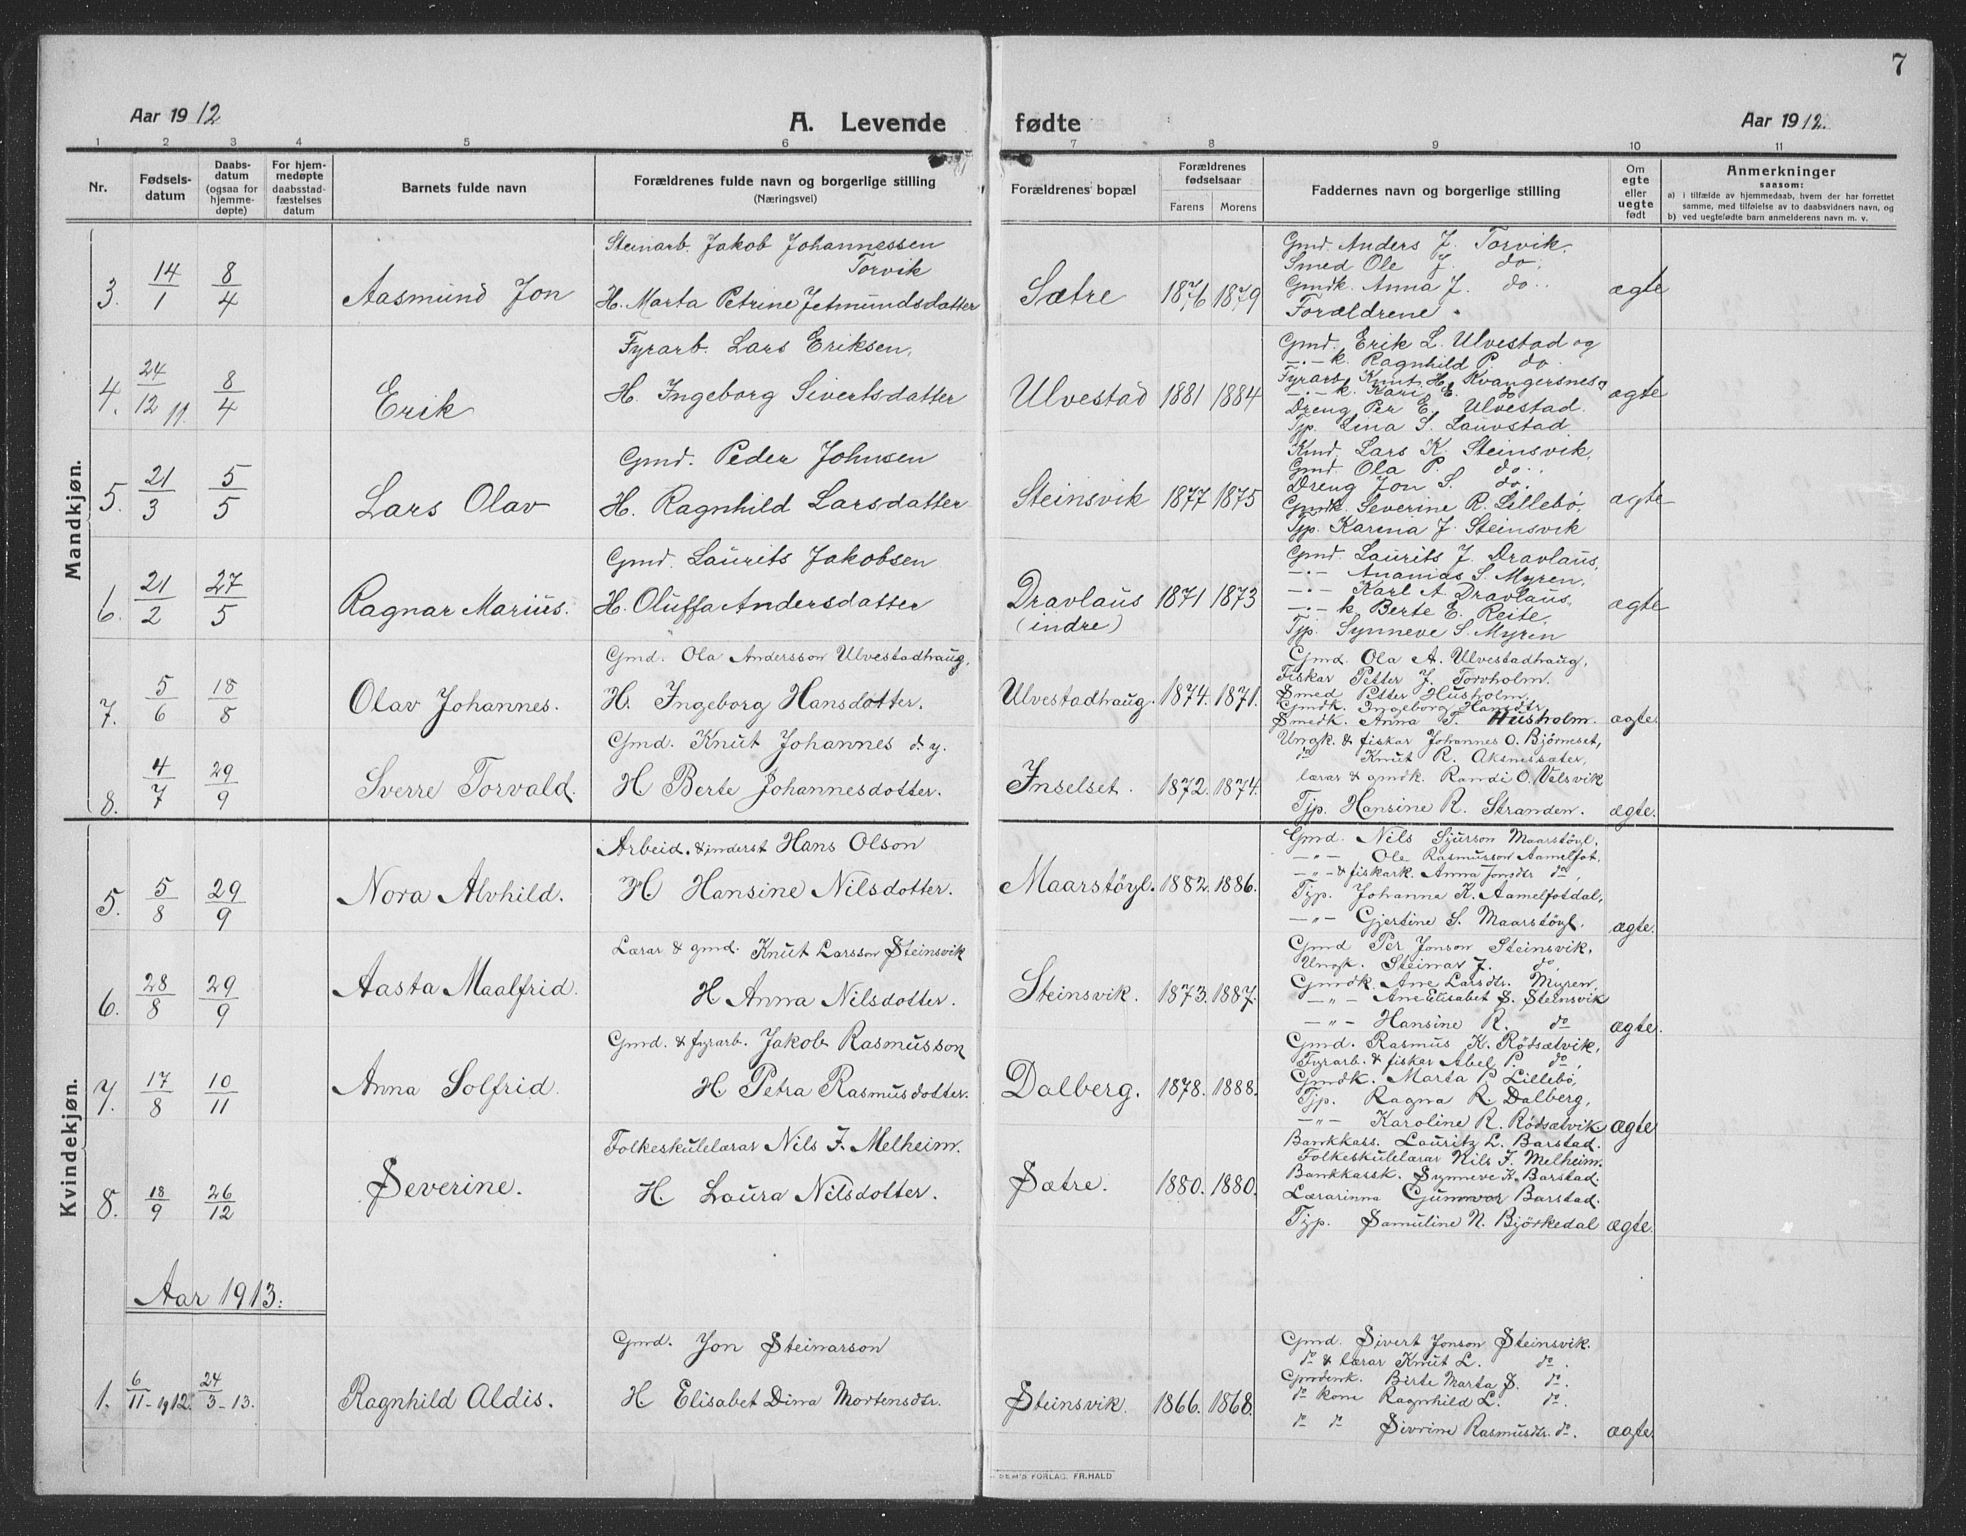 7
Aar 1912
A. Levende fødte
Aar 1912.
1 2 3 4 5 6 7 8 9 10 11
Nr.
Fødsels-
datum
Daabs-
datum
(ogsaa for
hjemme-
døpte)
For hjem-
medøpte
daabsstad-
fæstelses
datum
Barnets fulde navn
Forældrenes fulde navn og borgerlige stilling
(Næringsvei)
Forældrenes bopæl
Forældrenes
fødselsaar
Farens Morens
Faddernes navn og borgerlige stilling
Om
egte
eller
uegte
født
Anmerkninger
saasom:
a) i tilfælde av hjemmedaab, hvem der har forrettet
samme, med tilføielse av to daabsvidners navn, og
b) ved uegtefødte barn anmelderens navn m. v.
Mandkjøn.
3. 14/1 8/4 Aasmund Jon
Steinarb. Jakob Johannessen
Torvik
H. Marta Petrine Jetmundsdatter
Sætre 1876 1879
Gmd. Anders J. Torvik.
Smed Ole J. do.
Gmdk. Anna J. do..
Forældrene.
ægte
4. 24/12 11. 8/4 Erik
Fyrarb. Lars Eriksen,
H. Ingeborg Sivertsdatter
Ulvestad 1881 1884
Gmd. Erik L. Ulvestad og
-.-k. Ragnhild P. do.
Fyrarb. Knut H. Kvangersnes
-.-k. Kari E. do
Dreng Per E. Ulvestad.
Tjp. Lina S. Lauvstad
ægte
5. 21/3 5/5 Lars Olav
Gmd. Peder Johnsen
H. Ragnhild Larsdatter
Steinsvik 1877 1875
Kmd. Lars K. Steinsvik,
Gmd. Ola P. do..
Dreng Jon S. do.
Gmdk. Severine R. Lillebø,
Tjp. Karena J. Steinsvik
ægte
6. 21/2 27/5 Ragnar Marius.
Gmd. Laurits Jakobsen
H. Oluffa Andersdatter
Dravlaus
(indre)
1871 1873
Gmd. Laurits J. Dravlaus,
-.- Ananias S. Myren,
-.- Karl A. Dravlaus,
-.-k Berte E. Reite,
Tjp. Synneve S. Myren
ægte
7. 5/6 18/8 Olav Johannes.
Gmd. Ola Andersson Ulvestadhaug.
H. Ingeborg Hansdotter.
Ulvestadhaug. 1874. 1871.
Gmd. Ola A. Ulvestadhaug,
Fiskar Petter J. Torvholm.
Smed Petter Husholm,
Gmdk. Ingeborg Hansdtr,
Smedk. Anna T. Husholm.
ægte.
8. 4/7 29/9 Sverre Torvald.
Gmd. Knut Johannes d.y.
H Berte Johannesdotter.
Inselset. 1872. 1874.
Ungk. & fiskar Johannes O. Bjørneset,
do Knut R. Aksnessæter,
lærar & gmdk. Randi O. Velsvik
Tjp. Hansine R. Stranden.
ægte.
Kvindekjøn.
5. 5/8 29/9 Nora Alvhild.
Arbeid. & inderst Hans Olson
H Hansine Nilsdotter.
Maarstøyl. 1882. 1886.
Gmd. Nils Sjurson Maarstøyl,
-"- Ole Rasmusson Aamelfot,
-"- & fiskark. Anna Jonsdtr do,
Tjp. Johanna K. Aamelfotdal,
-"- Gjertine S. Maarstøyl.
ægte.
6. 28/8 29/9 Aasta Maalfrid.
Lærar & gmd. Knut Larsson Steinsvik
H Anna Nilsdotter.
Steinsvik. 1873. 1887.
Gmd Per Jonson Steinsvik,
Ungk. Steinar J. do,
Gmdk. Ane Larsdtr. Myren,
-"- Ane Elisabet S. Steinsvik
-"- Hansine R. do
ægte.
7. 17/8 10/11 Anna Solfrid.
Gmd. & fyrarb. Jakob Rasmusson
H Petra Rasmusdotter.
Dalberg. 1878. 1888.
Gmd. Rasmus K. Rødsætvik,
Fyrarb. & fiskar Abel P. do,
Gmdk. Marta P Lillebø,
Tjp. Ragna R. Dalberg,
-"- Karoline R. Rødsætvik
ægte
8. 18/9 26/12 Severine.
Folkeskulelærar Nils J. Melheim.
H. Laura Nilsdotter.
Sætre. 1880. 1880.
Bankkass. Lauritz L. Barstad.
Folkeskulelærar Nils J. Melheim.
Bankkassk. Synneve K. Barstad.
Lærarinna Gunnvor Barstad.
Tjp. Samuline N. Bjørkedal
ægte.
Aar 1913.
1. 6/11-1912. 24/3-13. Ragnhild Aldis.
Gmd. Jon Steinarson
H Elisabet Dina Mortensdtr.
Steinsvik. 1866. 1868.
Gmd. Sivert Jonson Steinsvik.
do & lærar Knut L. do.
Gmdenk. Birte Marta S. do.
do kone Ragnhild L. do.
do do Sivrine Rasmusdtr. do.
ægte.
DEM'S FORLAG, FR. HALD